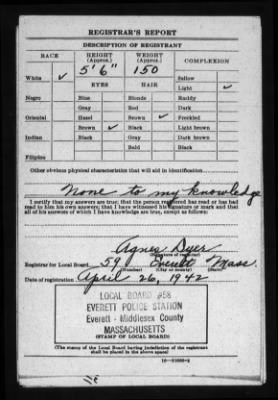 REGISTRAR'S REPORT
DESCRIPTION OF REGISTRANT
RACE HEIGHT (Approx.) WEIGHT (Approx.) COMPLEXION
5' 6" 150
White ✓ Sallow
EYES HAIR Light ✓
Negro Blue Blonde Ruddy
Gray Red Dark
Oriental Hazel Brown ✓ Freckled
Brown ✓ Black Light brown
Indian Black Gray Dark brown
Bald Black
Filipino
Other obvious physical characteristics that will aid in identification
None to my knowledge
I certify that my answers are true; that the person registered has read or has had
read to him his own answers; that I have witnessed his signature or mark and that
all of his answers of which I have knowledge are true, except as follows:
Agnes Dyer
(Signature of registrar)
Registrar for Local Board 59 Everett Mass.
(Number) (City or county) (State)
Date of registration April 26, 1942
LOCAL BOARD #58
EVERETT POLICE STATION
Everett - Middlesex County
MASSACHUSETTS
(STAMP OF LOCAL BOARD)
(The stamp of the Local Board having jurisdiction of the registrant
shall be placed in the above space.)